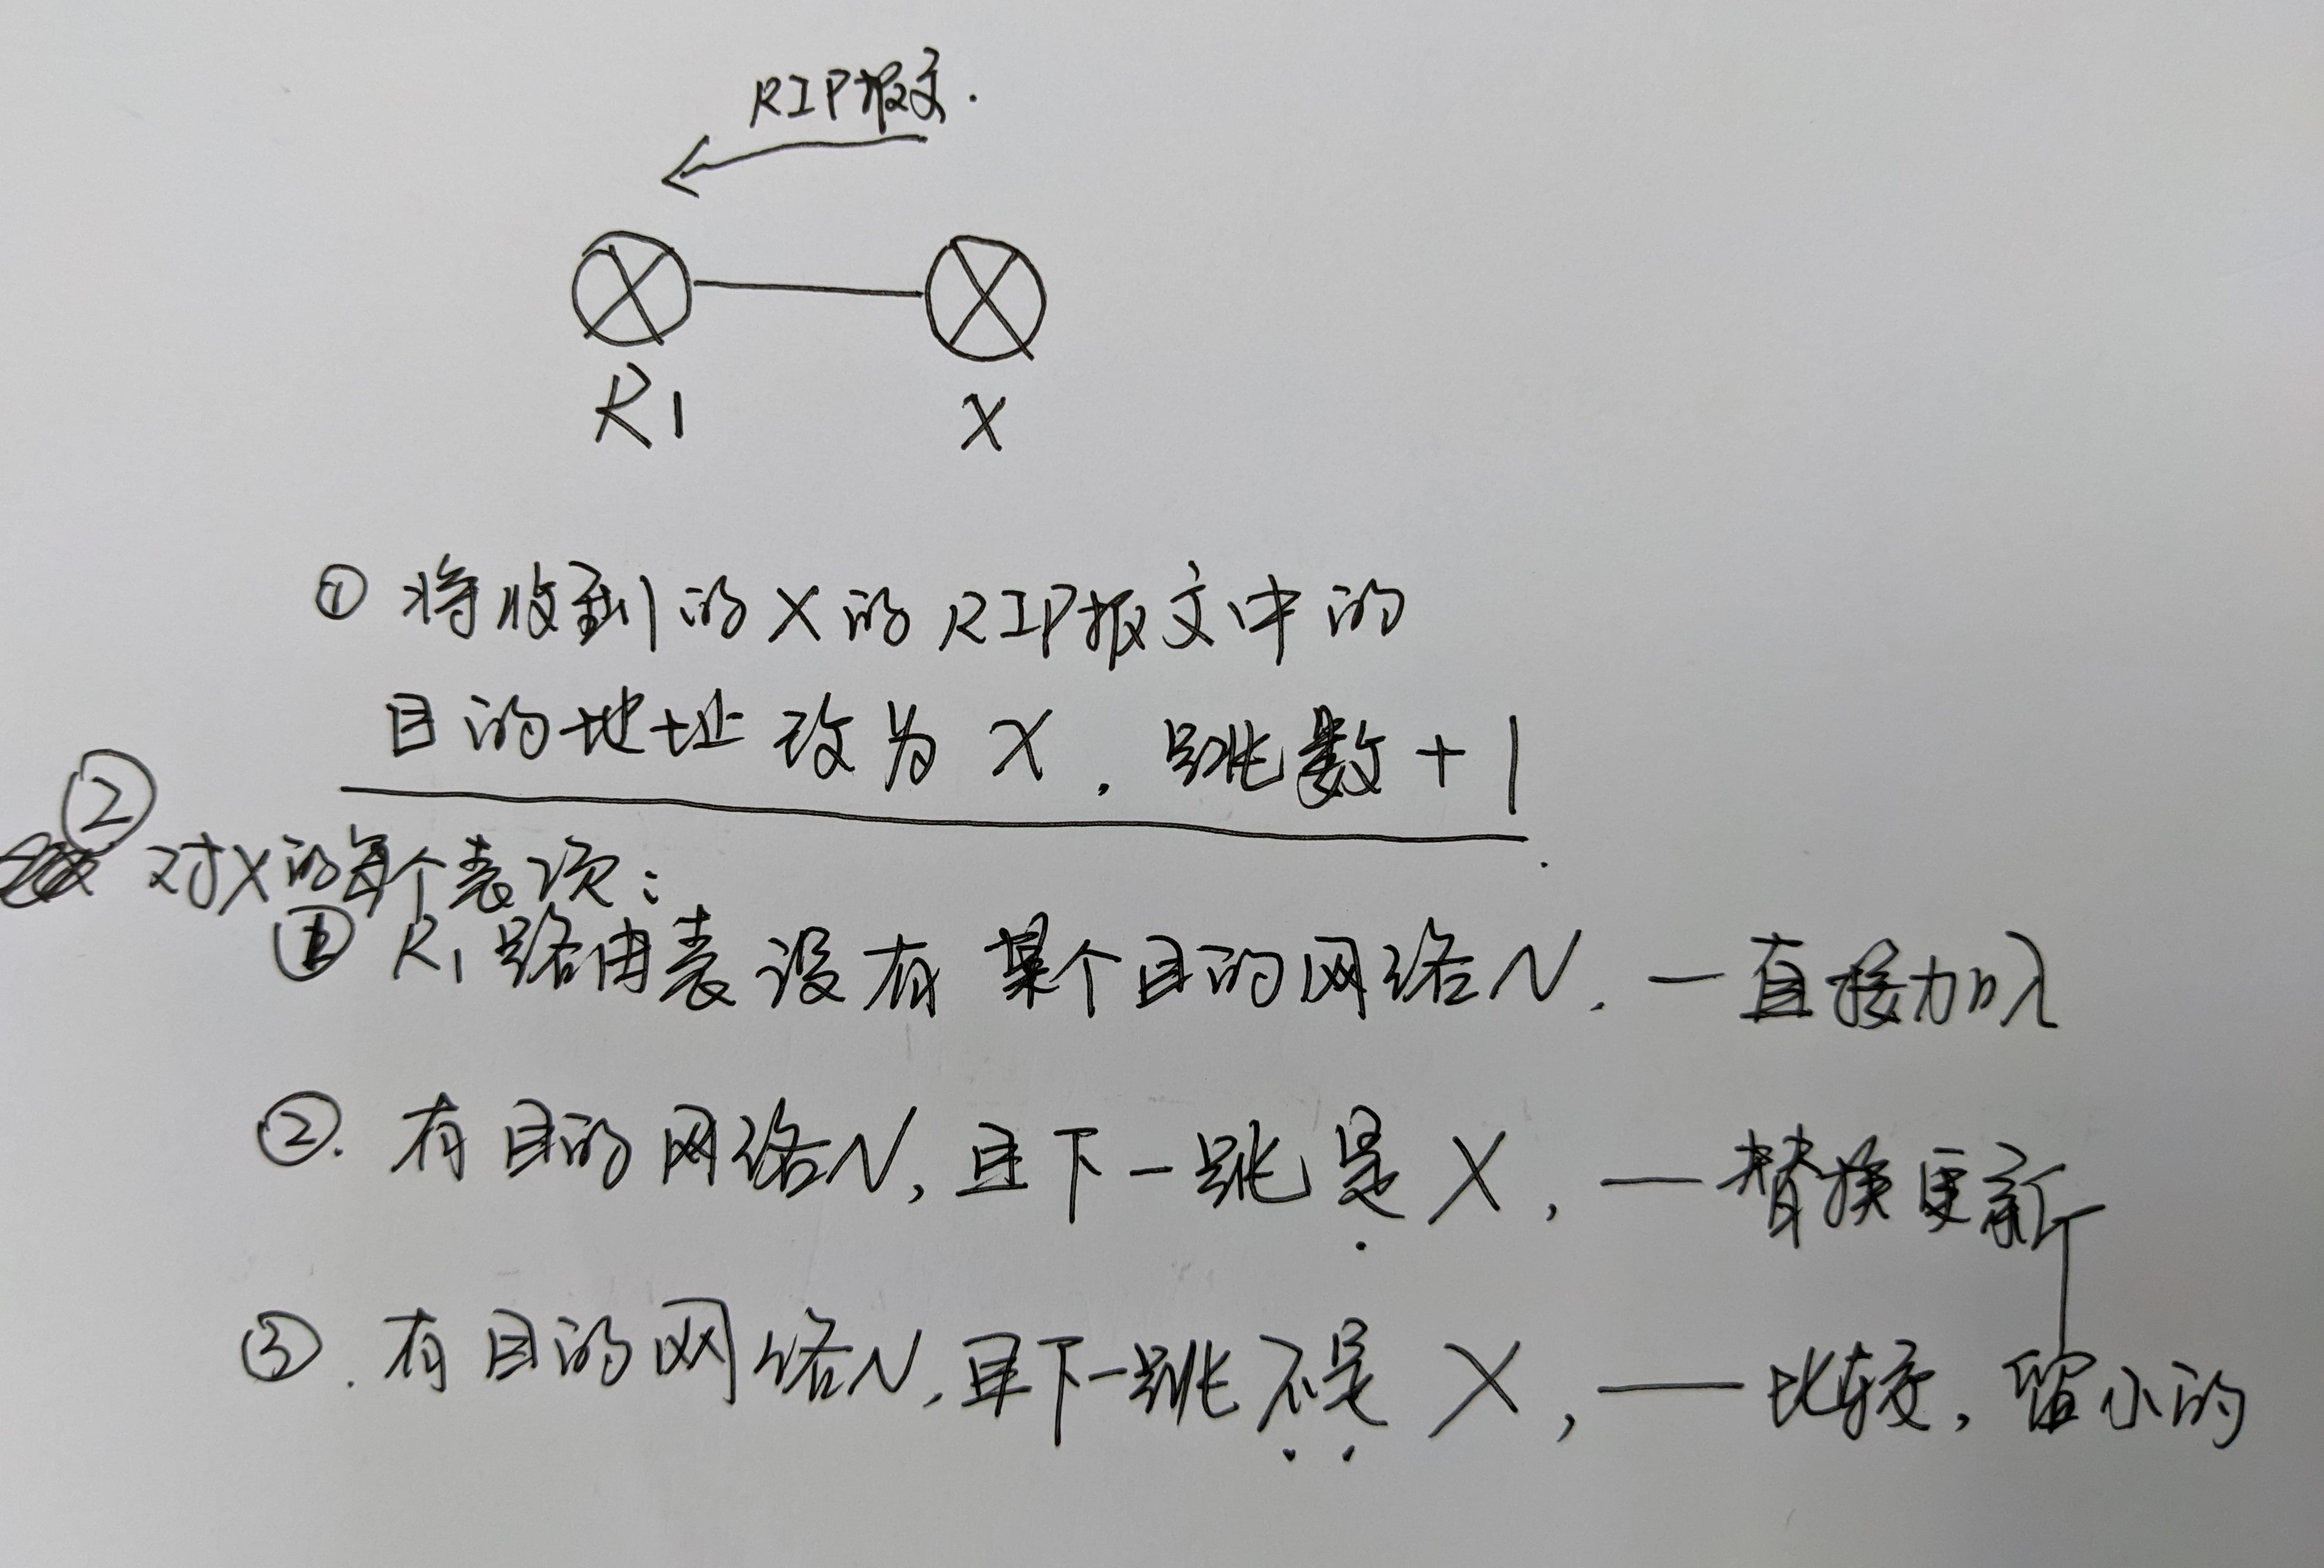 RIP报文.
R1
X
① 将收到的X的RIP报文中的
目的地址改为X, 跳数+1
②
对X的每个表项:
① R1路由表没有某个目的网络N. —直接加入
②. 有目的网络N, 且下一跳是X, —替换更新
③. 有目的网络N, 且下一跳不是X, —比较, 留小的